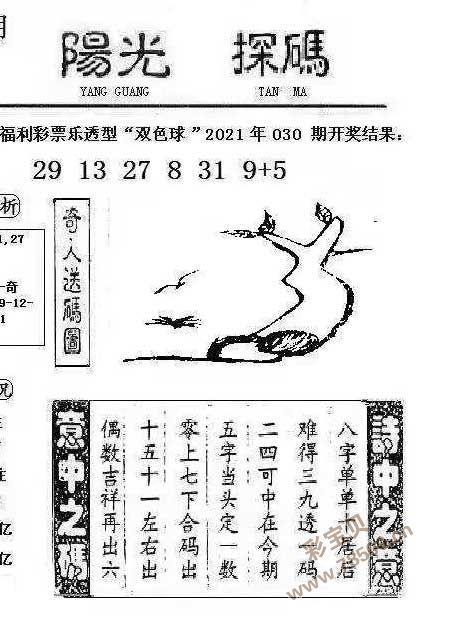 期
陽光 探碼
YANG GUANG TAN MA
福利彩票乐透型“双色球”2021年030 期开奖结果：
29 13 27 8 31 9+5
析
1,27
-奇
9-12-
1
奇人送碼圖
况
注
亿
亿
詩中之意
八字单单十居后
难得三九透一码
二四可中在今期
五字当头定一数
零上七下合码出
十五十一左右出
偶数吉祥再出六
意中之碼
彩宝贝